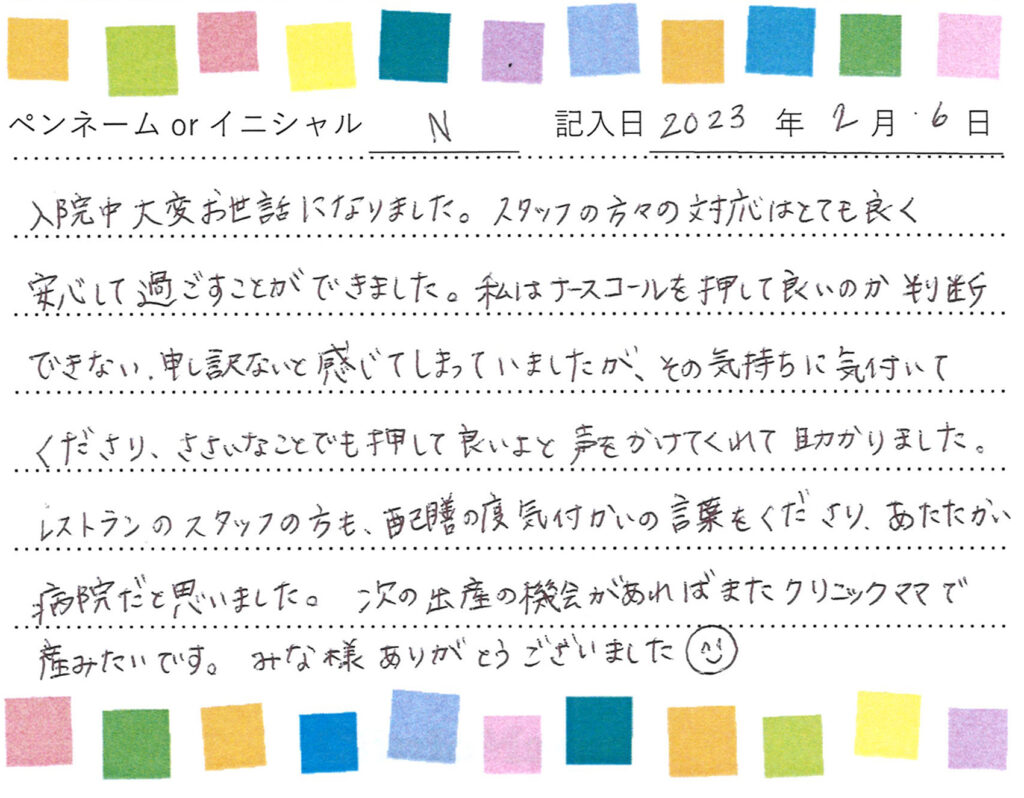 ペンネーム or イニシャル N 記入日 2023 年 2 月 6 日
入院中大変お世話になりました。スタッフの方々の対応はとても良く
安心して過ごすことができました。私はナースコールを押して良いのか判断
できない、申し訳ないと感じてしまっていましたが、その気持ちに気付いて
くださり、ささいなことでも押して良いよと声をかけてくれて助かりました。
レストランのスタッフの方も、配膳の度気付かいの言葉をくださり、あたたかい
病院だと思いました。次の出産の機会があればまたクリニックママで
産みたいです。みな様ありがとうございました